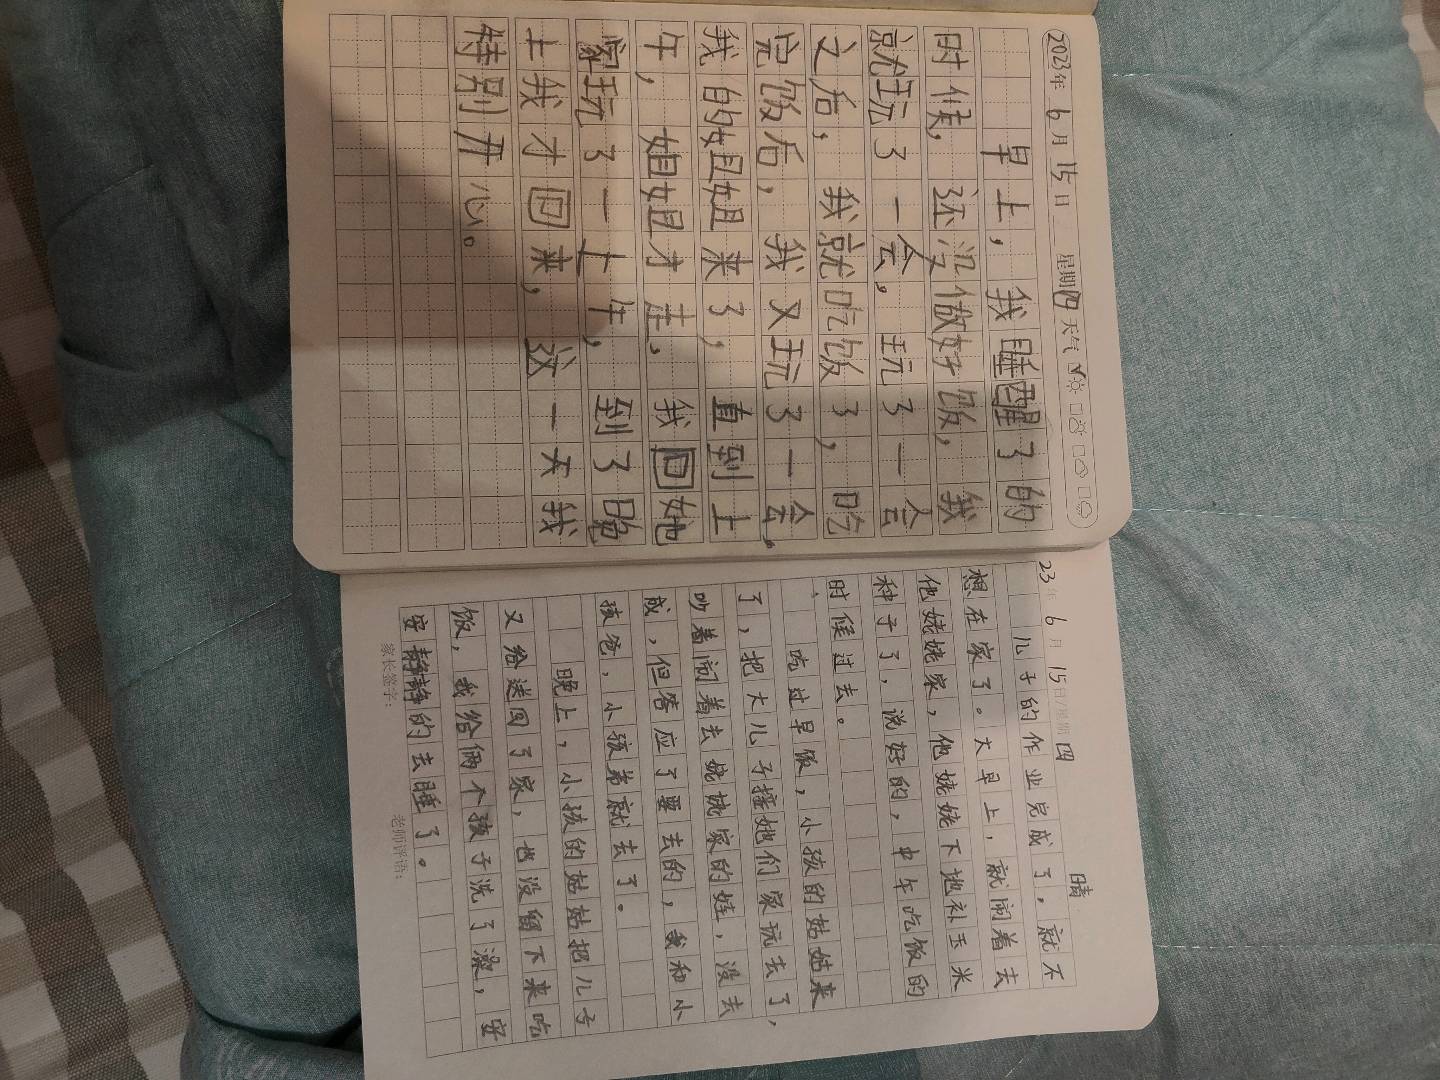 2023年 6月 15日 星期四 天气
早上，我睡醒了的
时候，还没做好饭，我
就玩了一会。玩了一会
之后，我就吃饭了，吃
完饭后，我又玩了一会，
我的姐姐来了，直到上
午，姐姐才走，我回她
家玩了一上午，到了晚
上我才回来，这一天我
特别开心。
23年 6月 15日/星期 四 晴
儿子的作业完成了，就不
想在家了。大早上，就闹着去
他姥姥家，他姥姥下地补玉米
种子了，说好的，中午吃饭的
时候过去。
吃过早饭，小孩的姑姑来
了，把大儿子接她们家玩去了，
吵着闹着去姥姥家的娃，没去
成，但答应了要去的，我和小
孩爸，小孩弟就去了。
晚上，小孩的姑姑把儿子
又给送回了家，也没留下来吃
饭，我给俩个孩子洗了澡，安
安静静的去睡了。
家长签字： 老师评语：